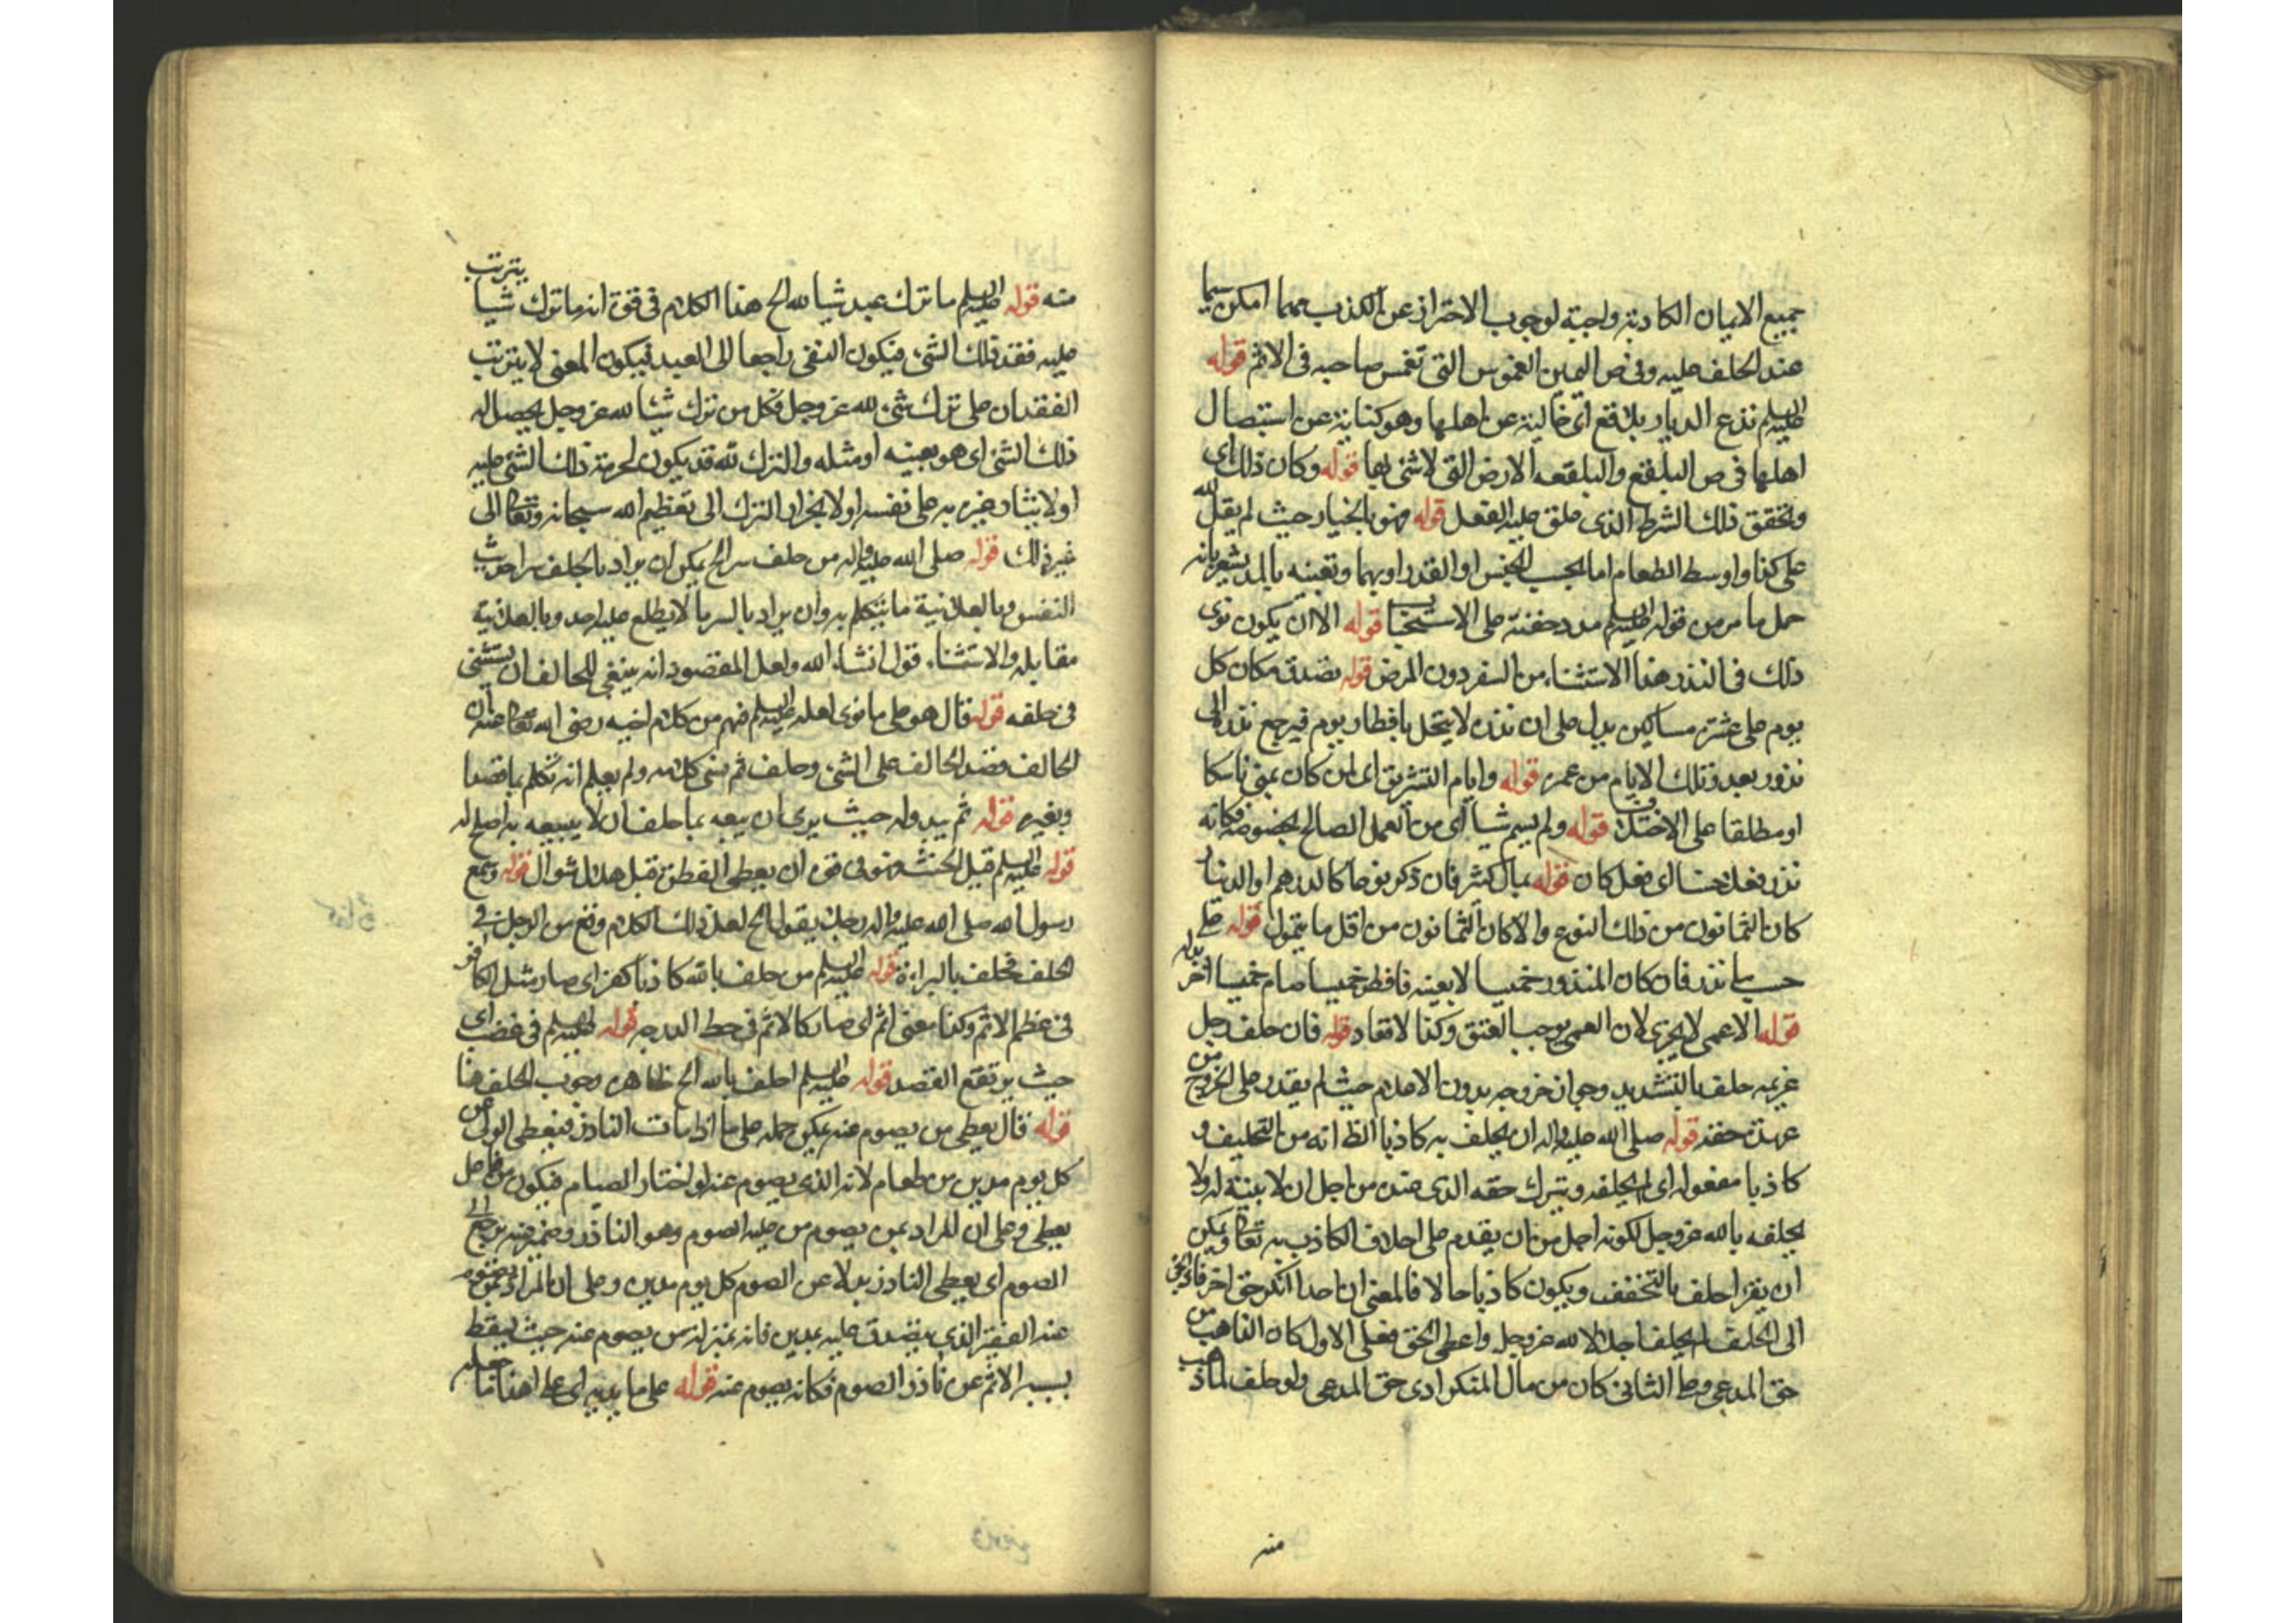 جميع الايمان الكاذبة واجبة لوجوب الاحتراز عن الكذب مهما امكن سيما
عند الحلف عليه وفى ص اليمين الغموس التى تغمس صاحبه فى الاثم قوله
عليه السلم تذع الديار بلاقع اى خالية عن اهلها وهو كناية عن استيصال
اهلها فى ص البلقع والبلقعه الارض التى لاشئ بها قوله وكان ذلك اى
وتحقق ذلك الشرط الذى علق عليه الفعل قوله فهو بالخيار حيث لم يقل لله
على كذا واوسط الطعام اما بحسب الجنس او القدر او بهما وتعيينه بالمد يشعر بانه
حمل ما مر من قوله عليه السلم مد وحفنة على الاستحباب قوله الا ان يكون نوى
ذلك فى النذر هذا الاستثناء من السفر دون المرض قوله تصدق مكان كل
يوم على عشرة مساكين يدل على ان نذره لا ينحل بافطار يوم فيرجع نذره الى
نذور بعدد تلك الايام من عمره قوله وايام التشريق اى لمن كان بمنى ناسكا
او مطلقا على الاختلاف قوله ولم يسم شيا اى من العمل الصالح بخصوصه فكانه
نذر فعلا حسنا اى فعل كان قوله بمال كثير فان ذكر نوعا كالدرهم او الدينار
كان الثمانون من ذلك النوع والا كان الثمانون من اقل ما يتمول قوله على
حسب ما نذر فان كان المنذور خميسا لا بعينه فافطر خميسا صام خميسا اخر بدله
قوله الاعمى لا يجزى لان العمى يوجب العتق وكذا الاقعاد قوله فان حلف رجل
غريمه حلف بالتشديد وجواز خروجه بدون الاعلام حيث لم يقدر على الخروج من
عهدة حقه قوله صلى الله عليه واله ان يحلف به كاذبا الظ انه من التحليف و
كاذبا مفعوله اى لم يحلفه ويترك حقه الذى عنده من اجل ان لا بينة له ولا
يحلفه بالله عز وجل لكونه اجل من ان يقدم على احلاف الكاذب به تعالى ويمكن
ان يقرا حلف بالتخفيف ويكون كاذبا حالا فالمعنى ان احدا انكر حق اخر
الى الحلف لم يحلف اجلالا لله عز وجل واعطى الحق فعلى الاول كان الذاهب من
حق المدعى وعلى الثانى كان من مال المنكر ادى حق المدعى ولو حلف
منه
منه قوله عليه السلم ما ترك عبد شيا لله الخ هذا الكلام فى قوة انه ما ترك شيا يترتب
عليه فقد ذلك الشئ فيكون النفى راجعا الى العبد فيكون المعنى لا يترتب
الفقدان على ترك شئ لله عز وجل فكل من ترك شيئا لله عز وجل يحصل له
ذلك الشئ اى هو بعينه او مثله والترك لله قد يكون لحرمة ذلك الشئ عليه
او لايثار غيره به على نفسه او لانجرار الترك الى تعظيم الله سبحانه وتعالى الى
غير ذلك قوله صلى الله عليه واله من حلف سرا الخ يمكن ان يراد بالحلف سرا حديث
النفس وبالعلانية ما يتكلم به وان يراد بالسر ما لا يطلع عليه احد وبالعلانية
مقابله والاستثناء قول انشاء الله ولعل المقصود انه ينبغى للحالف ان يستثنى
فى حلفه قوله فقال هو على ما نوى لعله عليه السلم فهم من كلام اخيه رضى الله تعالى عنه ان
الحالف قصد الحالف على الشئ وحلف ثم نسى كلامه ولم يعلم انه تكلم بما قصدا
وبغيره قوله ثم يبدو له حيث يرى ان بيعه بما حلف ان لا يبيعه به اصلح له
قوله عليه السلم قبل الحنث فهو فى قوة ان يعطى الفطرة قبل هلال شوال قوله وسمع
رسول الله صلى الله عليه واله رجلا يقول الخ لعل ذلك الكلام وقع من الرجل فى
الحلف فحلف بالبراءة قوله عليه السلم من حلف بالله كاذبا كفر اى صار مثل الكافر
فى عظم الاثم وكذا معنى اثم اى صار كالاثم فى حط الدرجه قوله عليه السلم فى غضب اى
حيث يرتفع القصد قوله عليه السلم احلف بالله الخ ظاهره وجوب الحلف هنا
قوله فقال يعطى من يصوم عنه يمكن حمله على ما اذا مات الناذر فيعطى الولى من
كل يوم مدين من طعام لانه الذى يصوم عنه لو اختار الصيام فيكون من فاعل
يعطى وعلى ان المراد بمن يصوم من عليه الصوم وهو الناذر وضمير عنه يرجع الى
الصوم اى يعطى الناذر بدلا عن الصوم كل يوم مدين وعلى ان المراد بمن يصوم
عنه الفقير الذى يتصدق عليه بمدين فانه بمنزلة من يصوم عنه حيث يسقط
بسببه الاثم عن ناذر الصوم فكانه يصوم عنه قوله على ما بيديه اى على اهذا ما